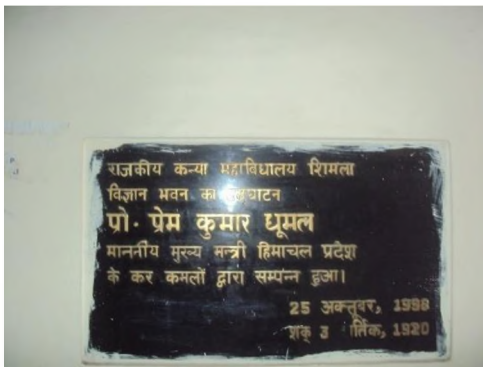 राजकीय कन्या महाविधालय शिमला
विज्ञान भवन का
प्रो॰ प्रेम कुमार धूमल
माननीय मुख्य मन्त्री हिमाचल प्रदेश
के कर कमलों द्वारा सम्पन्न हुआ।
25 अक्तूबर, 1998
शक् 3 र्तिक, 1920